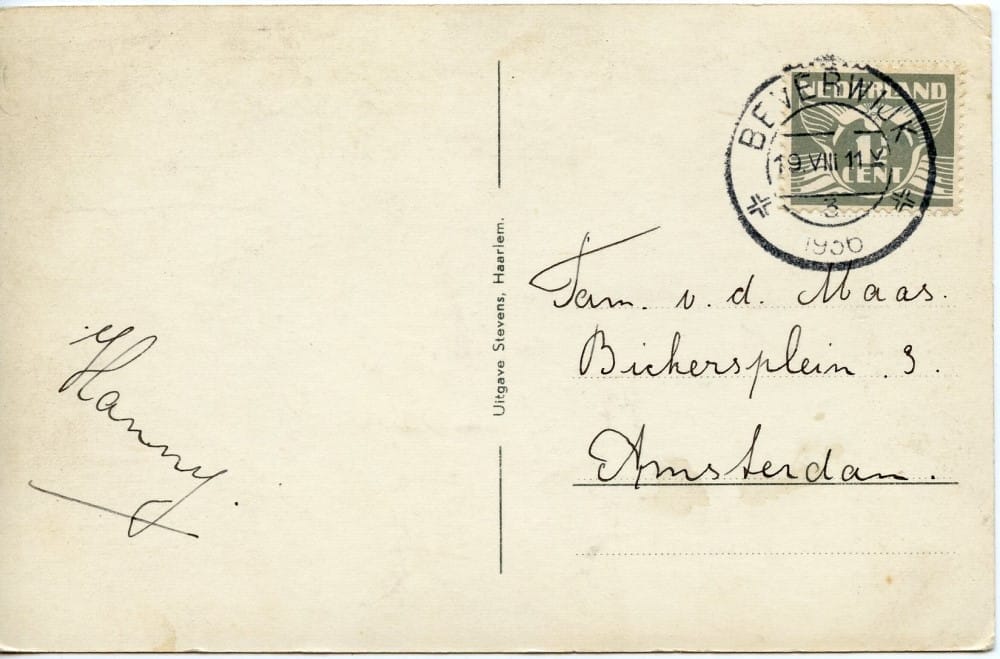 NEDERLAND
1½
CENT
BEVERWIJK
19.VIII 11 K
3
1936
Uitgave Stevens, Haarlem.
Fam. v. d. Maas.
Bickersplein . 9 .
Amsterdam .
Hanny.